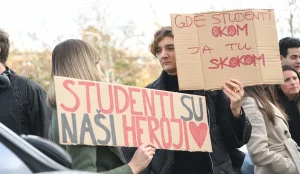 GDE STUDENTI
OKOM
JA TU
SKOKOM
STUDENTI SU
NAŠI HEROJI